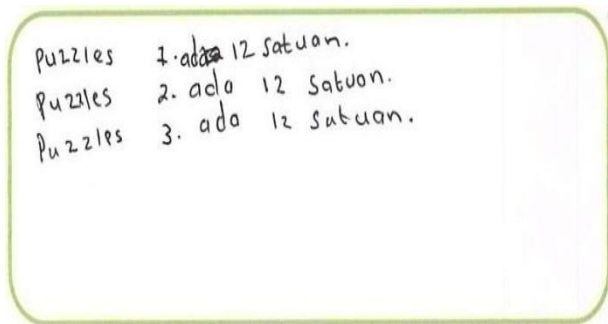 Puzzles 1. ada 12 satuan.
Puzzles 2. ada 12 satuan.
Puzzles 3. ada 12 satuan.